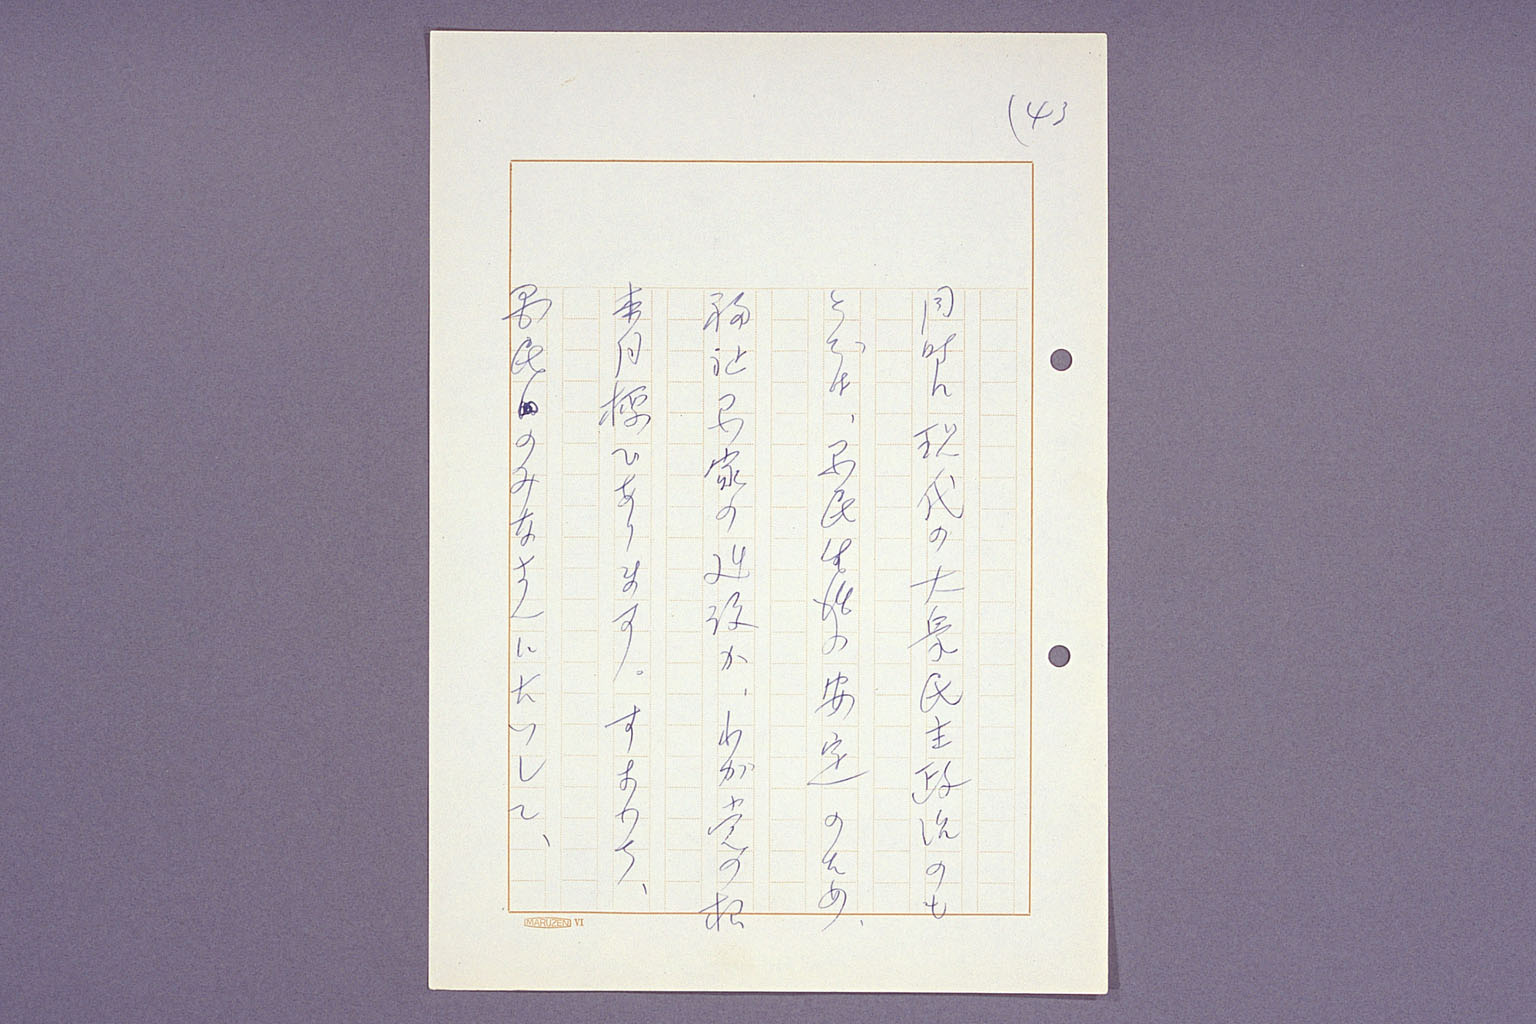 (4)
同時に現代の大衆民主政治のも
とでは、国民生活の安定のため、
福祉国家の建設が、わが党の根
本目標であります。すなわち、
国民のみなさんにたいして、
MARUZEN VI